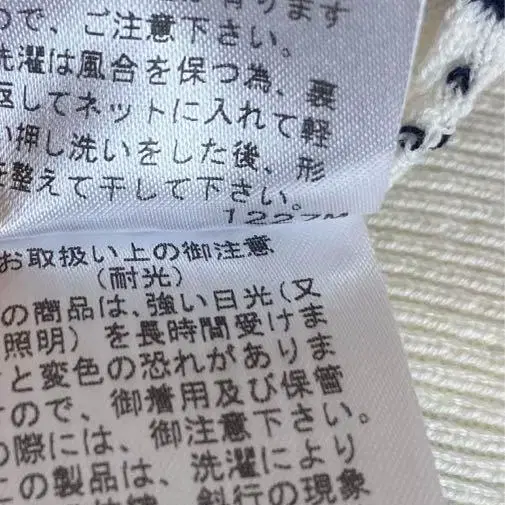 有ります
ので、ご注意下さい。
洗濯は風合を保つ為、裏
返してネットに入れて軽
い押し洗いをした後、形
を整えて干して下さい。
1227M
お取扱い上の御注意
(耐光)
の商品は、強い日光(又
照明)を長時間受けま
と変色の恐れがありま
すので、御着用及び保管
の際には、御注意下さい。
この製品は、洗濯により
斜行の現象